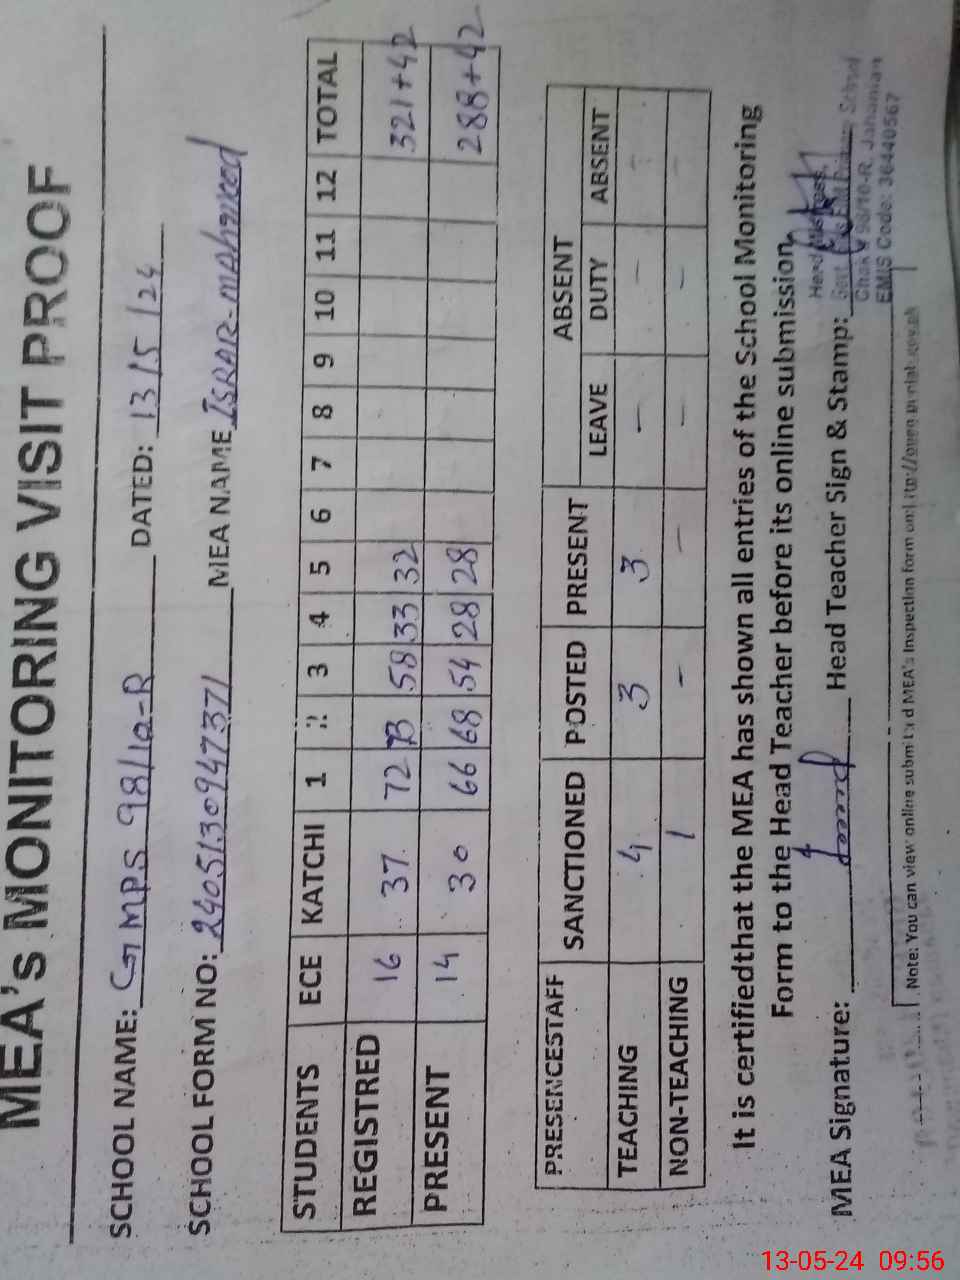 MEA's MONITORING VISIT PROOF
SCHOOL NAME: GMPS 98/10-R DATED: 13/5/24
SCHOOL FORM NO: 24051309947371 MEA NAME ISRAR-MAHMOOD
STUDENTS ECE KATCHI 1 2 3 4 5 6 7 8 9 10 11 12 TOTAL
REGISTRED 16 37 72 73 58 33 32 321+42
PRESENT 14 30 66 68 54 28 28 288+42
PRESENCESTAFF SANCTIONED POSTED PRESENT ABSENT
LEAVE DUTY ABSENT
TEACHING 4 3 3 - - -
NON-TEACHING 1 - - - - -
It is certifiedthat the MEA has shown all entries of the School Monitoring
Form to the Head Teacher before its online submission.
MEA Signature: Head Teacher Sign & Stamp:
Head Mistress,
Govt. School
Chak # 98/10-R, Jahanian
EMIS Code: 36440567
Note: You can view online submitted MEA's Inspection form on:
13-05-24 09:56